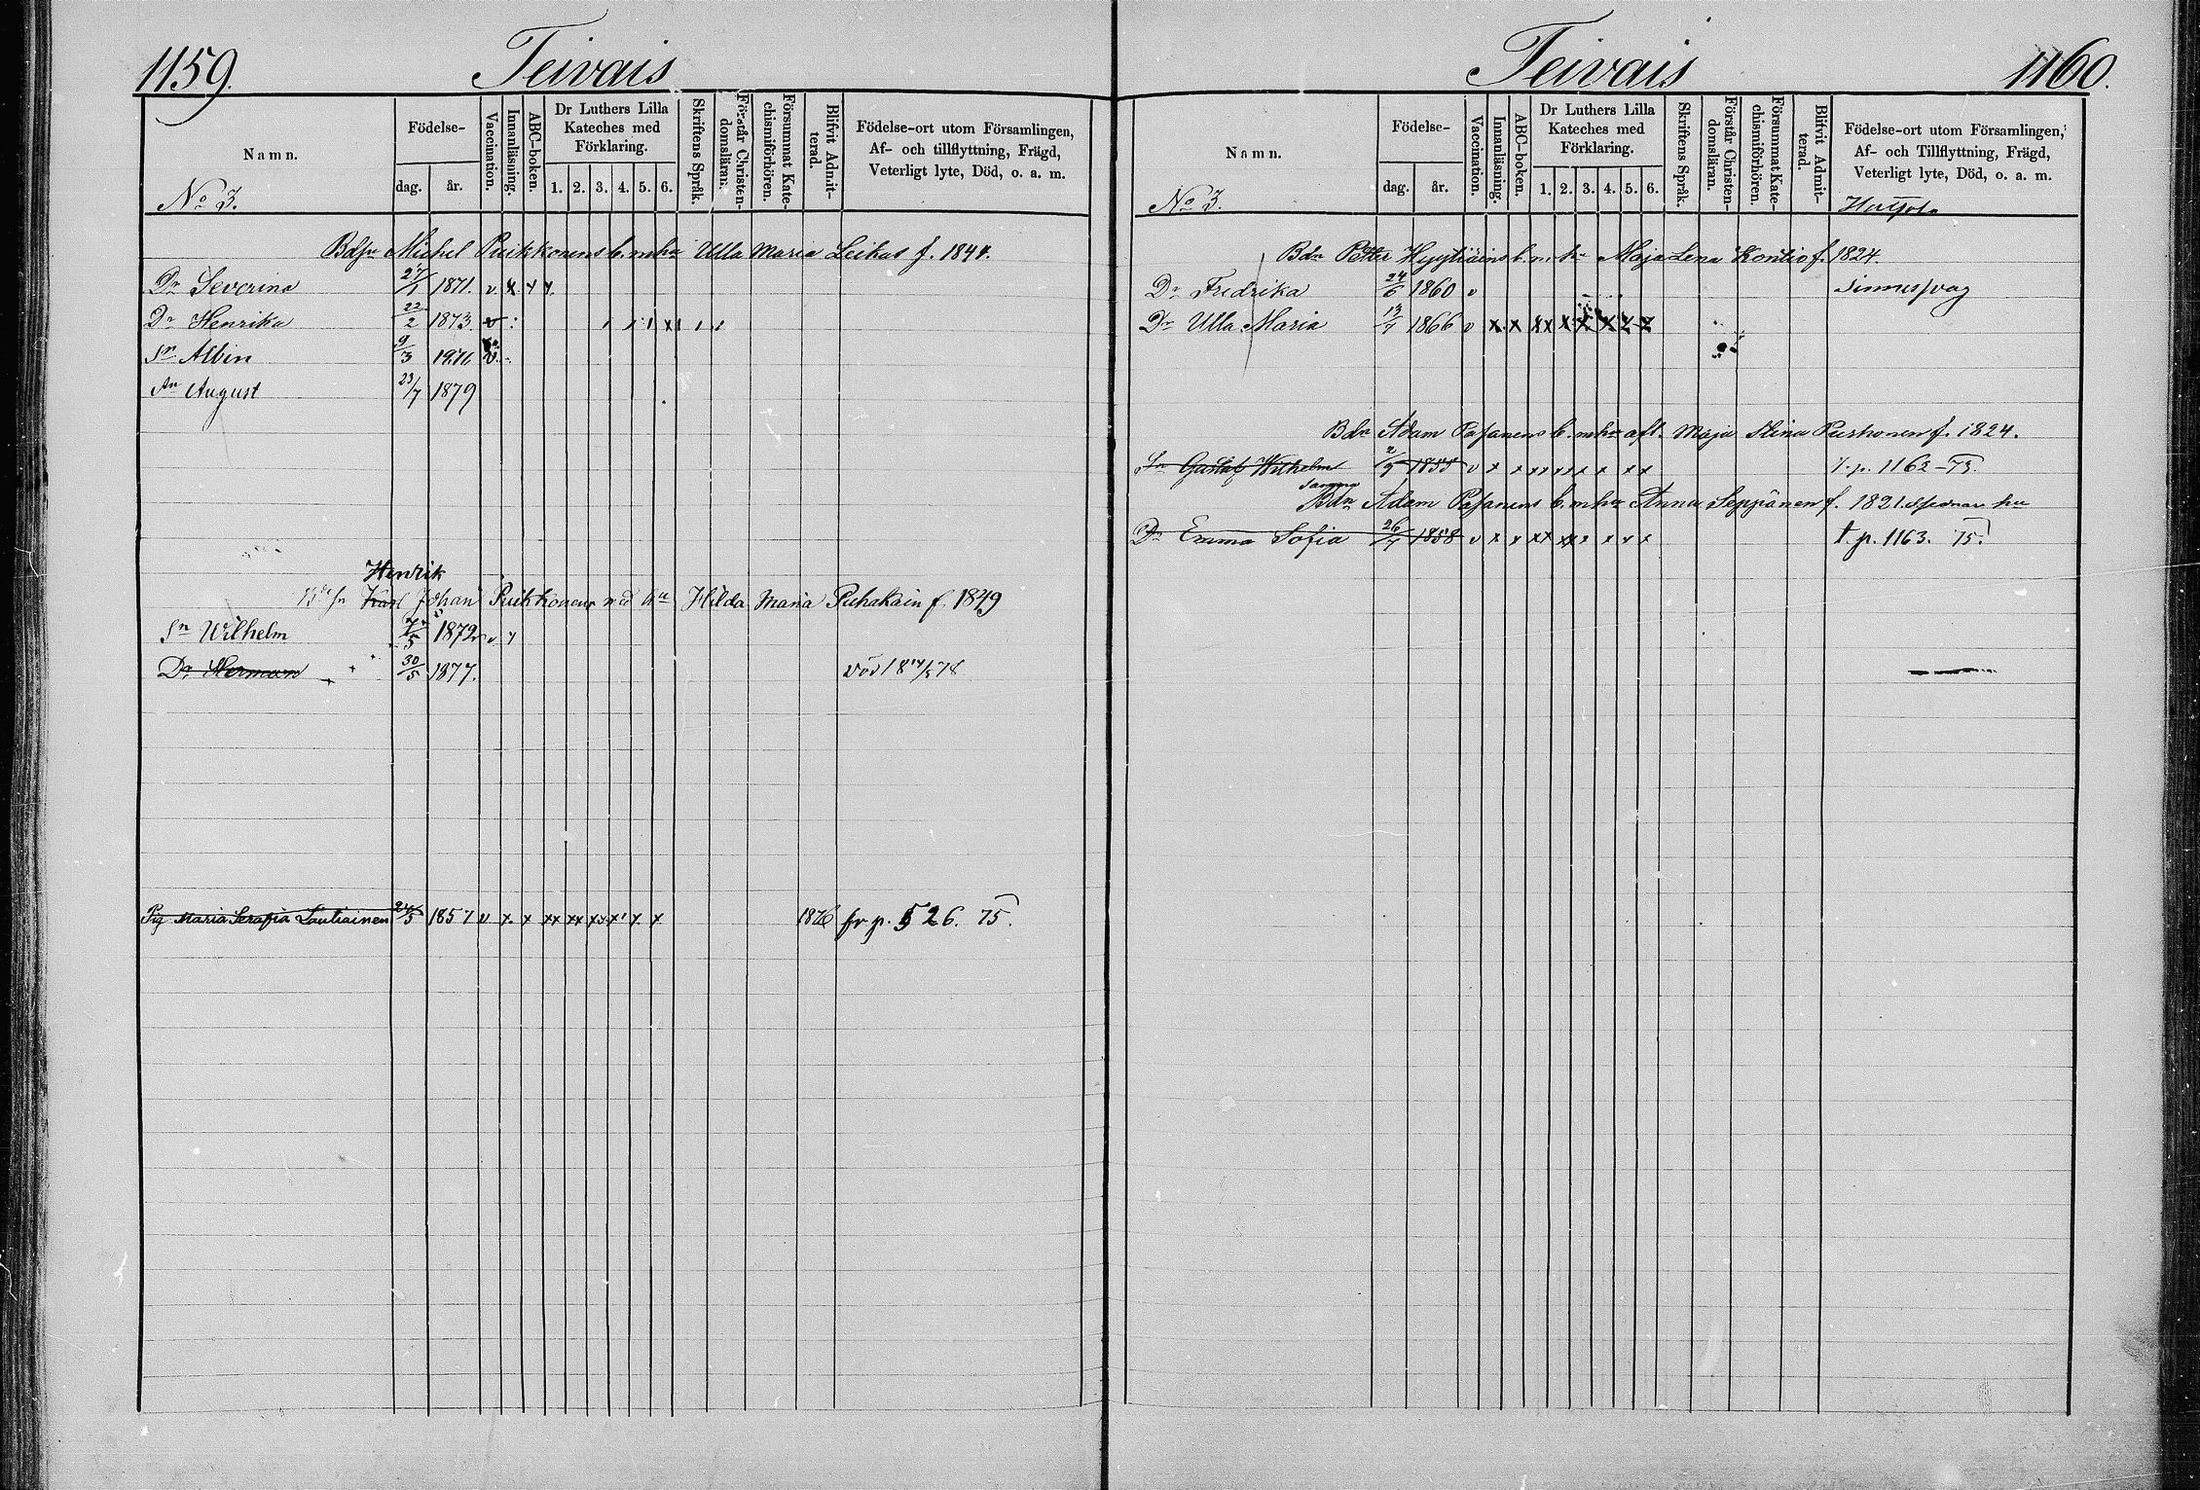 1159.
Teivais
Namn.
Födelse-
dag.
år.
Vaccination.
Innanläsning.
ABC-boken.
Dr Luthers Lilla
Kateches med
Förklaring.
1. 2. 3. 4. 5. 6.
Skriftens Språk.
Förstår Christen-
domsläran.
Försummat Kate-
chismiförhören.
Blifvit Admit-
terad.
Födelse-ort utom Församlingen,
Af- och tillflyttning, Frägd,
Veterligt lyte, Död, o. a. m.
No 3.
Michel Puikkonens b. m. hu Ulla Maria Leikas f.
Dr Severina 1871. v x x x
Dr Henrika 22/2 1873. v
Sn Albin 9/3 v
Sn August 23/7 1879
Henrik
Karl Johan Puikkonens med hu Hilda Maria Puhakain f. 1849
Sn Wilhelm 1872 v
Dr Herman 30/5 1877.
Pig Maria Serafia Lautiainen 1857 v x x xx xx xx x x x 1876 fr p. 526. 75.
Teivais
1160.
Namn.
Födelse-
dag.
år.
Vaccination.
Innanläsning.
ABC-boken.
Dr Luthers Lilla
Kateches med
Förklaring.
1. 2. 3. 4. 5. 6.
Skriftens Språk.
Förstår Christen-
domsläran.
Försummat Kate-
chismiförhören.
Blifvit Admit-
terad.
Födelse-ort utom Församlingen,
Af- och Tillflyttning, Frägd,
Veterligt lyte, Död, o. a. m.
No 3.
Bdn Petter Hyytiäins b. m. hu Maja Lena Kontio f. 1824.
Dr Fredrika 24/6 1860 v Sinnessvag
Dr Ulla Maria 1866 v x x xx x x x x x
Bdn Adam Pasanens b. m. hu afl. Maja Stina Purhonen f. 1824.
Sn Gustaf Wilhelm 1855 v x x xx xx x x x x t. p. 1162-73.
samma
Bdn Adam Pasanens b. m. hu Anna Seppänen f. 1821. hu
Dr Emma Sofia 26/7 1858 v x x xx xx x x x x t. p. 1163. 75.